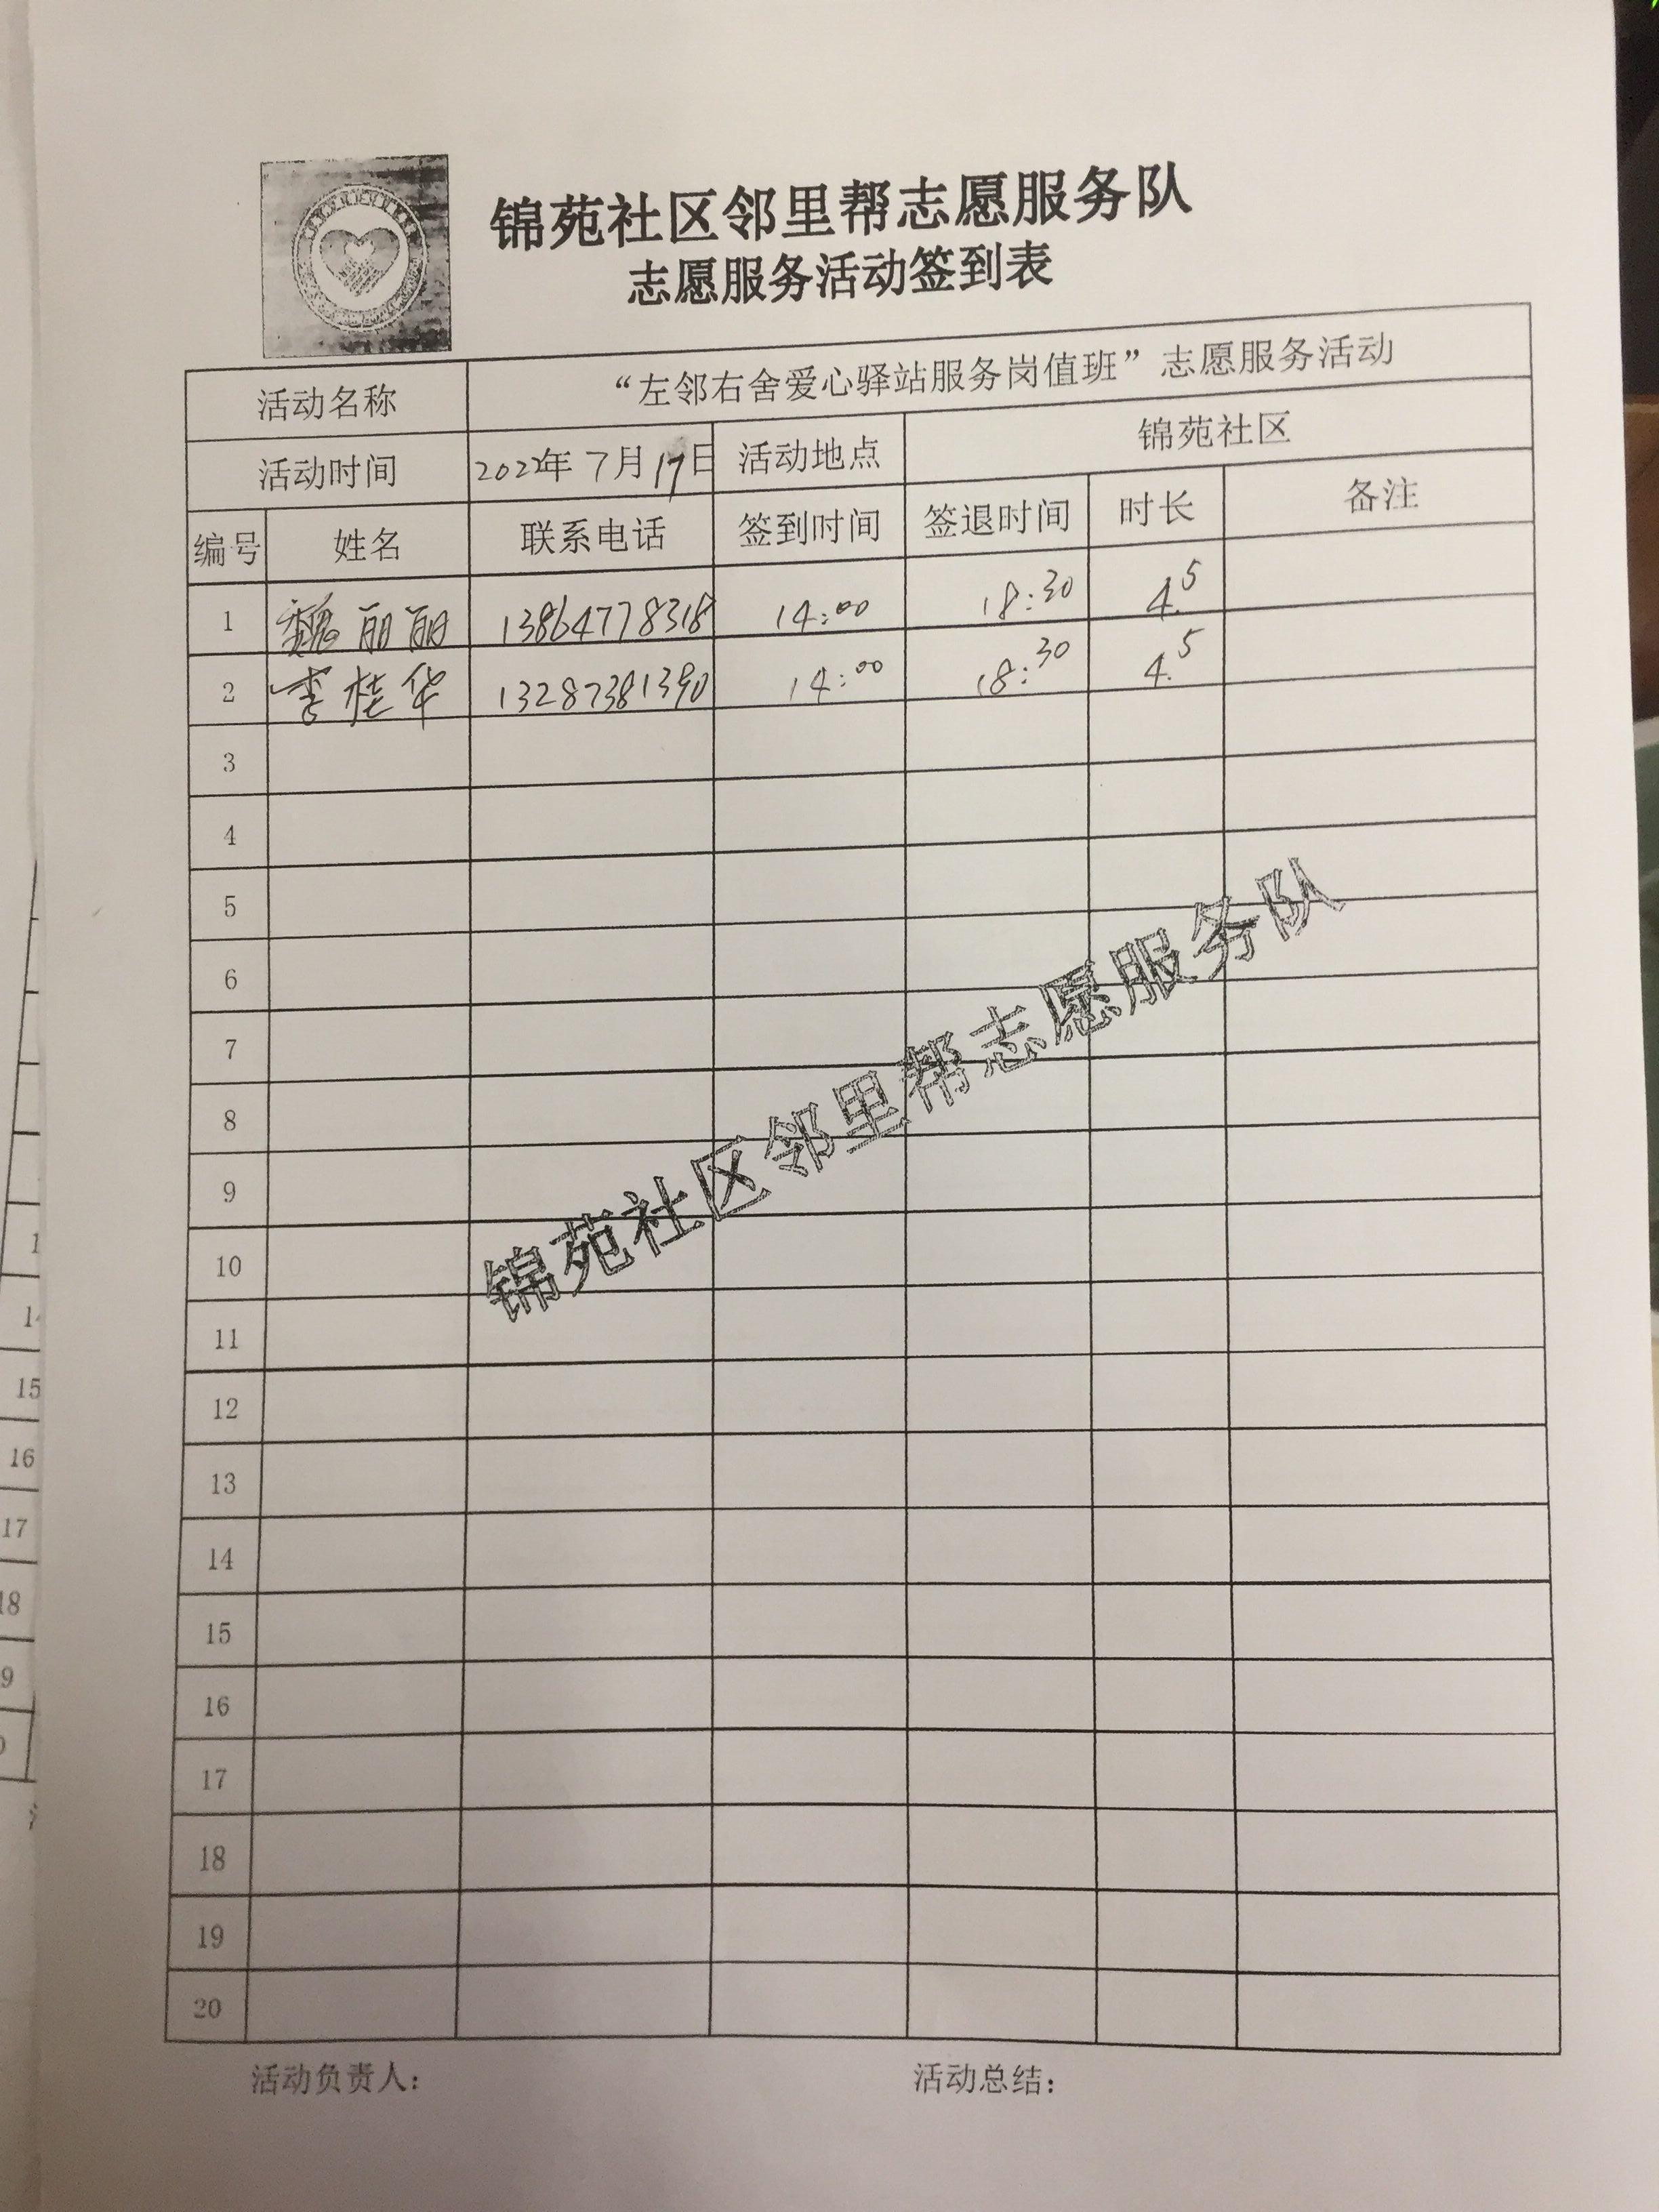 锦苑社区邻里帮志愿服务队
志愿服务活动签到表
活动名称 “左邻右舍爱心驿站服务岗值班”志愿服务活动
活动时间 2022年7月17日 活动地点 锦苑社区
编号 姓名 联系电话 签到时间 签退时间 时长 备注
1 魏丽丽 13864778318 14:00 18:30 4.5
2 李桂华 13287381390 14:00 18:30 4.5
3
4
5
6
7
8
9
10
11
12
13
14
15
16
17
18
19
20
锦苑社区邻里帮志愿服务队
活动负责人: 活动总结:
14
15
16
17
18